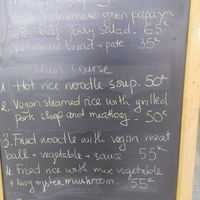 Vietnamese green papaya
with salad. 65k
Vietnamese bread + pate. 35k
Main Course
1. Hot rice noodle soup. 50k
2. Vegan steamed rice with grilled
pork chop and meatloaf - 50k
3. Fried noodle with vegan meat
ball + vegetable + sauce 55k
4. Fried rice with mix vegetable
+ king oyster mushroom. 55k